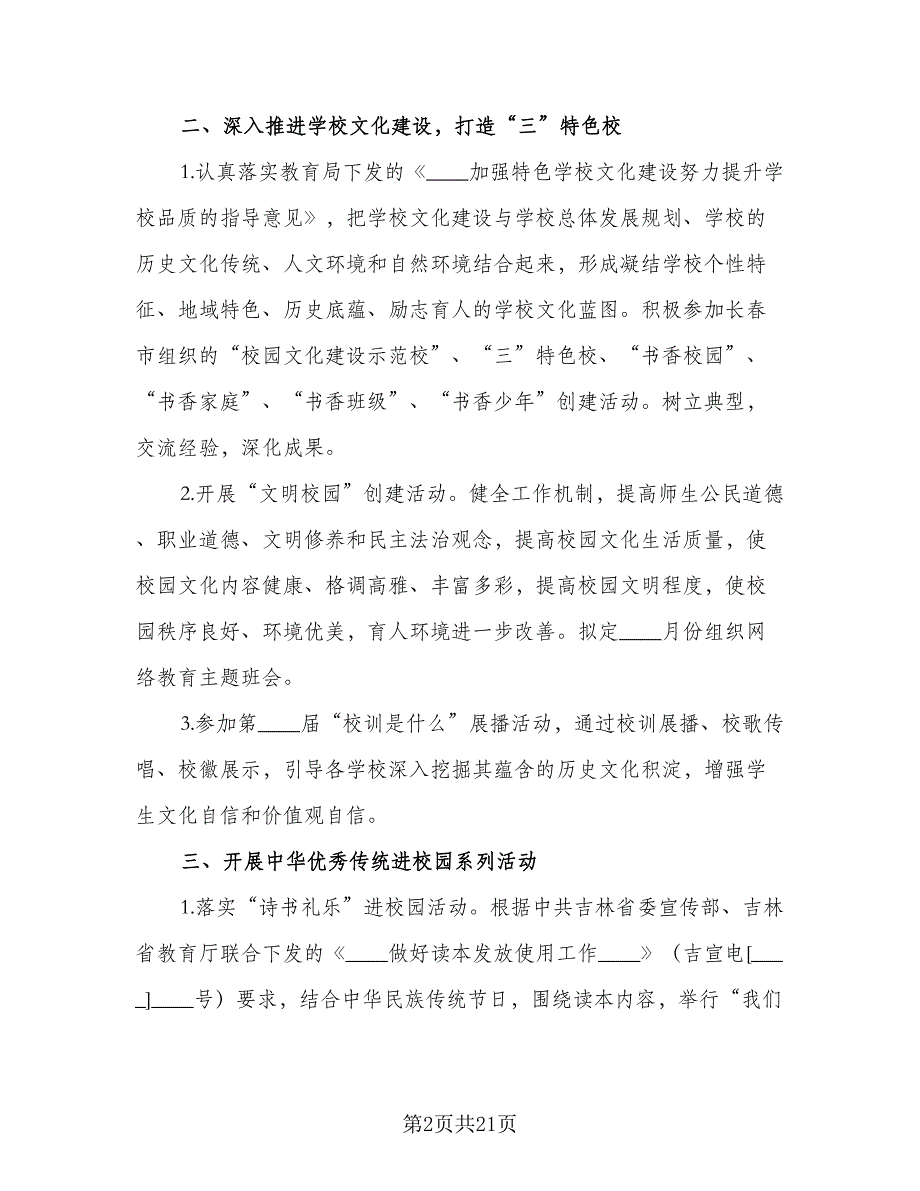 二、深入推进学校文化建设，打造“三”特色校
1.认真落实教育局下发的《____加强特色学校文化建设努力提升学
校品质的指导意见》，把学校文化建设与学校总体发展规划、学校的
历史文化传统、人文环境和自然环境结合起来，形成凝结学校个性特
征、地域特色、历史底蕴、励志育人的学校文化蓝图。积极参加长春
市组织的“校园文化建设示范校”、“三”特色校、“书香校园”、
“书香家庭”、“书香班级”、“书香少年”创建活动。树立典型，
交流经验，深化成果。
2.开展“文明校园”创建活动。健全工作机制，提高师生公民道德
、职业道德、文明修养和民主法治观念，提高校园文化生活质量，使
校园文化内容健康、格调高雅、丰富多彩，提高校园文明程度，使校
园秩序良好、环境优美，育人环境进一步改善。拟定____月份组织网
络教育主题班会。
3.参加第____届“校训是什么”展播活动，通过校训展播、校歌传
唱、校徽展示，引导各学校深入挖掘其蕴含的历史文化积淀，增强学
生文化自信和价值观自信。
三、开展中华优秀传统进校园系列活动
1.落实“诗书礼乐”进校园活动。根据中共吉林省委宣传部、吉林
省教育厅联合下发的《____做好读本发放使用工作____》（吉宣电[___
_]____号）要求，结合中华民族传统节日，围绕读本内容，举行“我们
第2页共21页